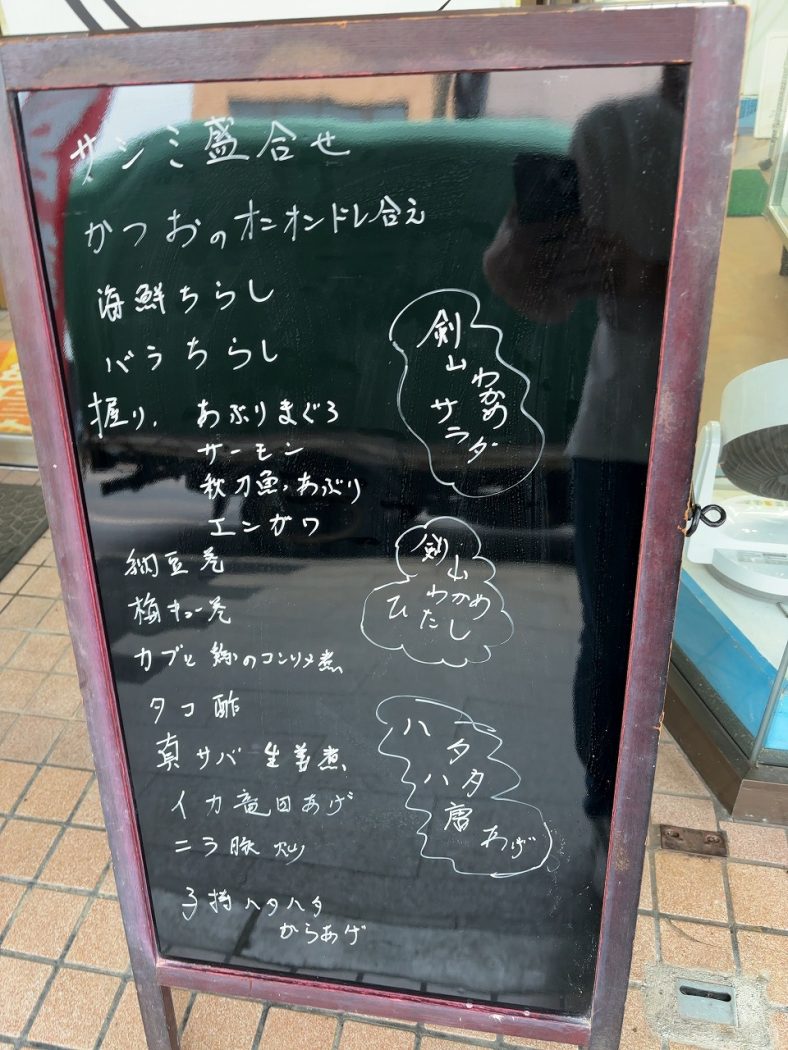 サシミ盛合せ
かつおのオニオンドレ合え
海鮮ちらし
バラちらし
握り、あぶりまぐろ
サーモン
秋刀魚、あぶり
エンガワ
納豆巻
梅キュー巻
カブと のコンソメ煮
タコ酢
真サバ生姜煮
イカ竜田あげ
ニラ豚炒
子持ハタハタ
からあげ
剣山
わかめ
サラダ
剣山
わかめ
ひたし
ハタハタ
唐あげ